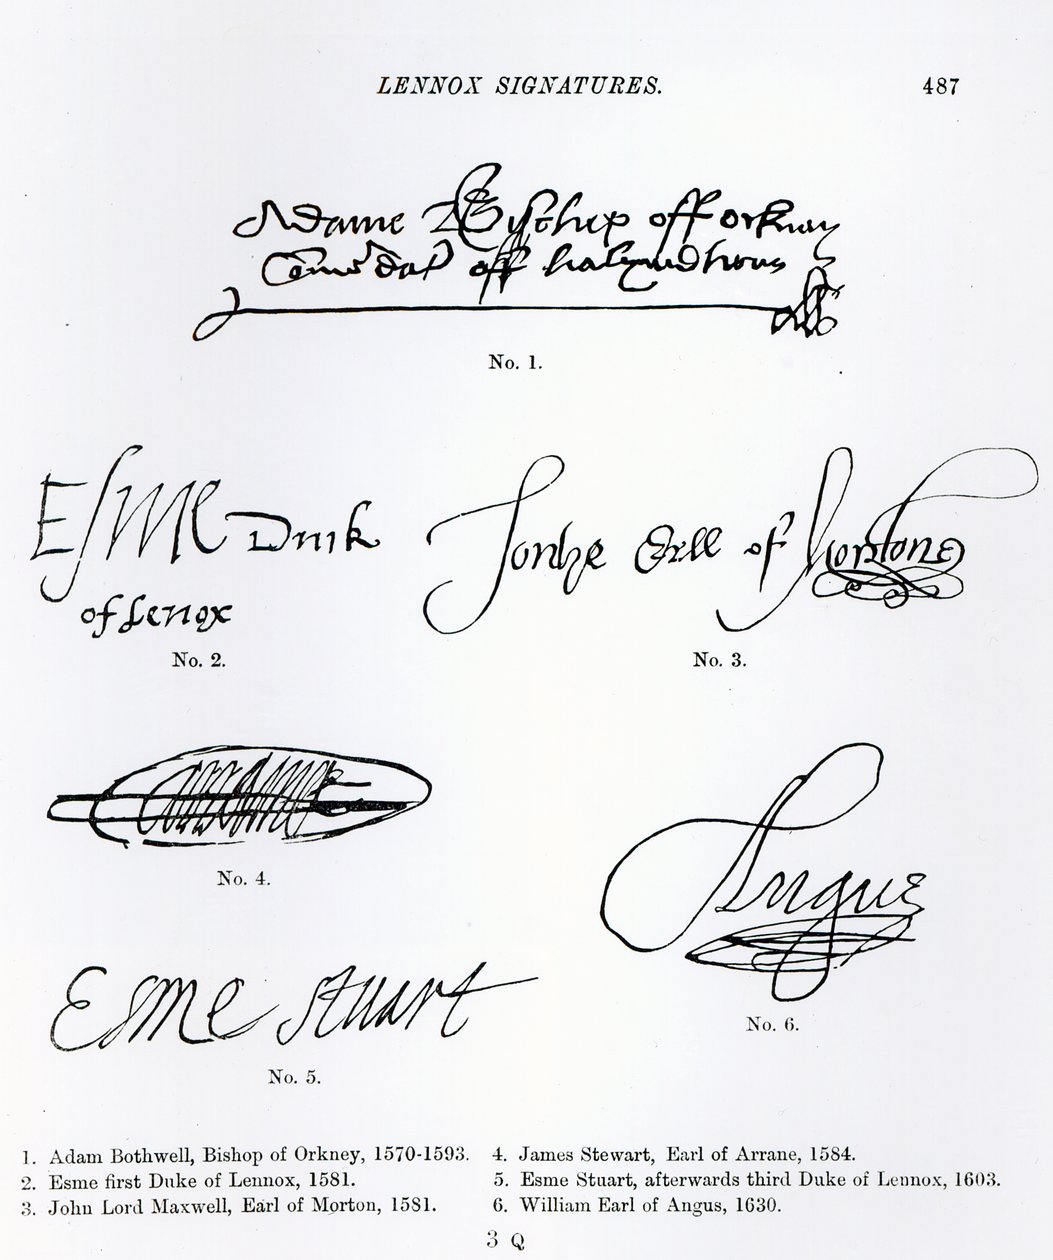 LENNOX SIGNATURES. 487
Adame Bischep off orknay
off halyrudhous
No. 1.
Esme Duik
of Lenox
No. 2.
Jonhe Erll of Mortone
No. 3.
arrane
No. 4.
Angus
No. 6.
Esme Stuart
No. 5.
1. Adam Bothwell, Bishop of Orkney, 1570-1593.
2. Esme first Duke of Lennox, 1581.
3. John Lord Maxwell, Earl of Morton, 1581.
4. James Stewart, Earl of Arrane, 1584.
5. Esme Stuart, afterwards third Duke of Lennox, 1603.
6. William Earl of Angus, 1630.
3 Q